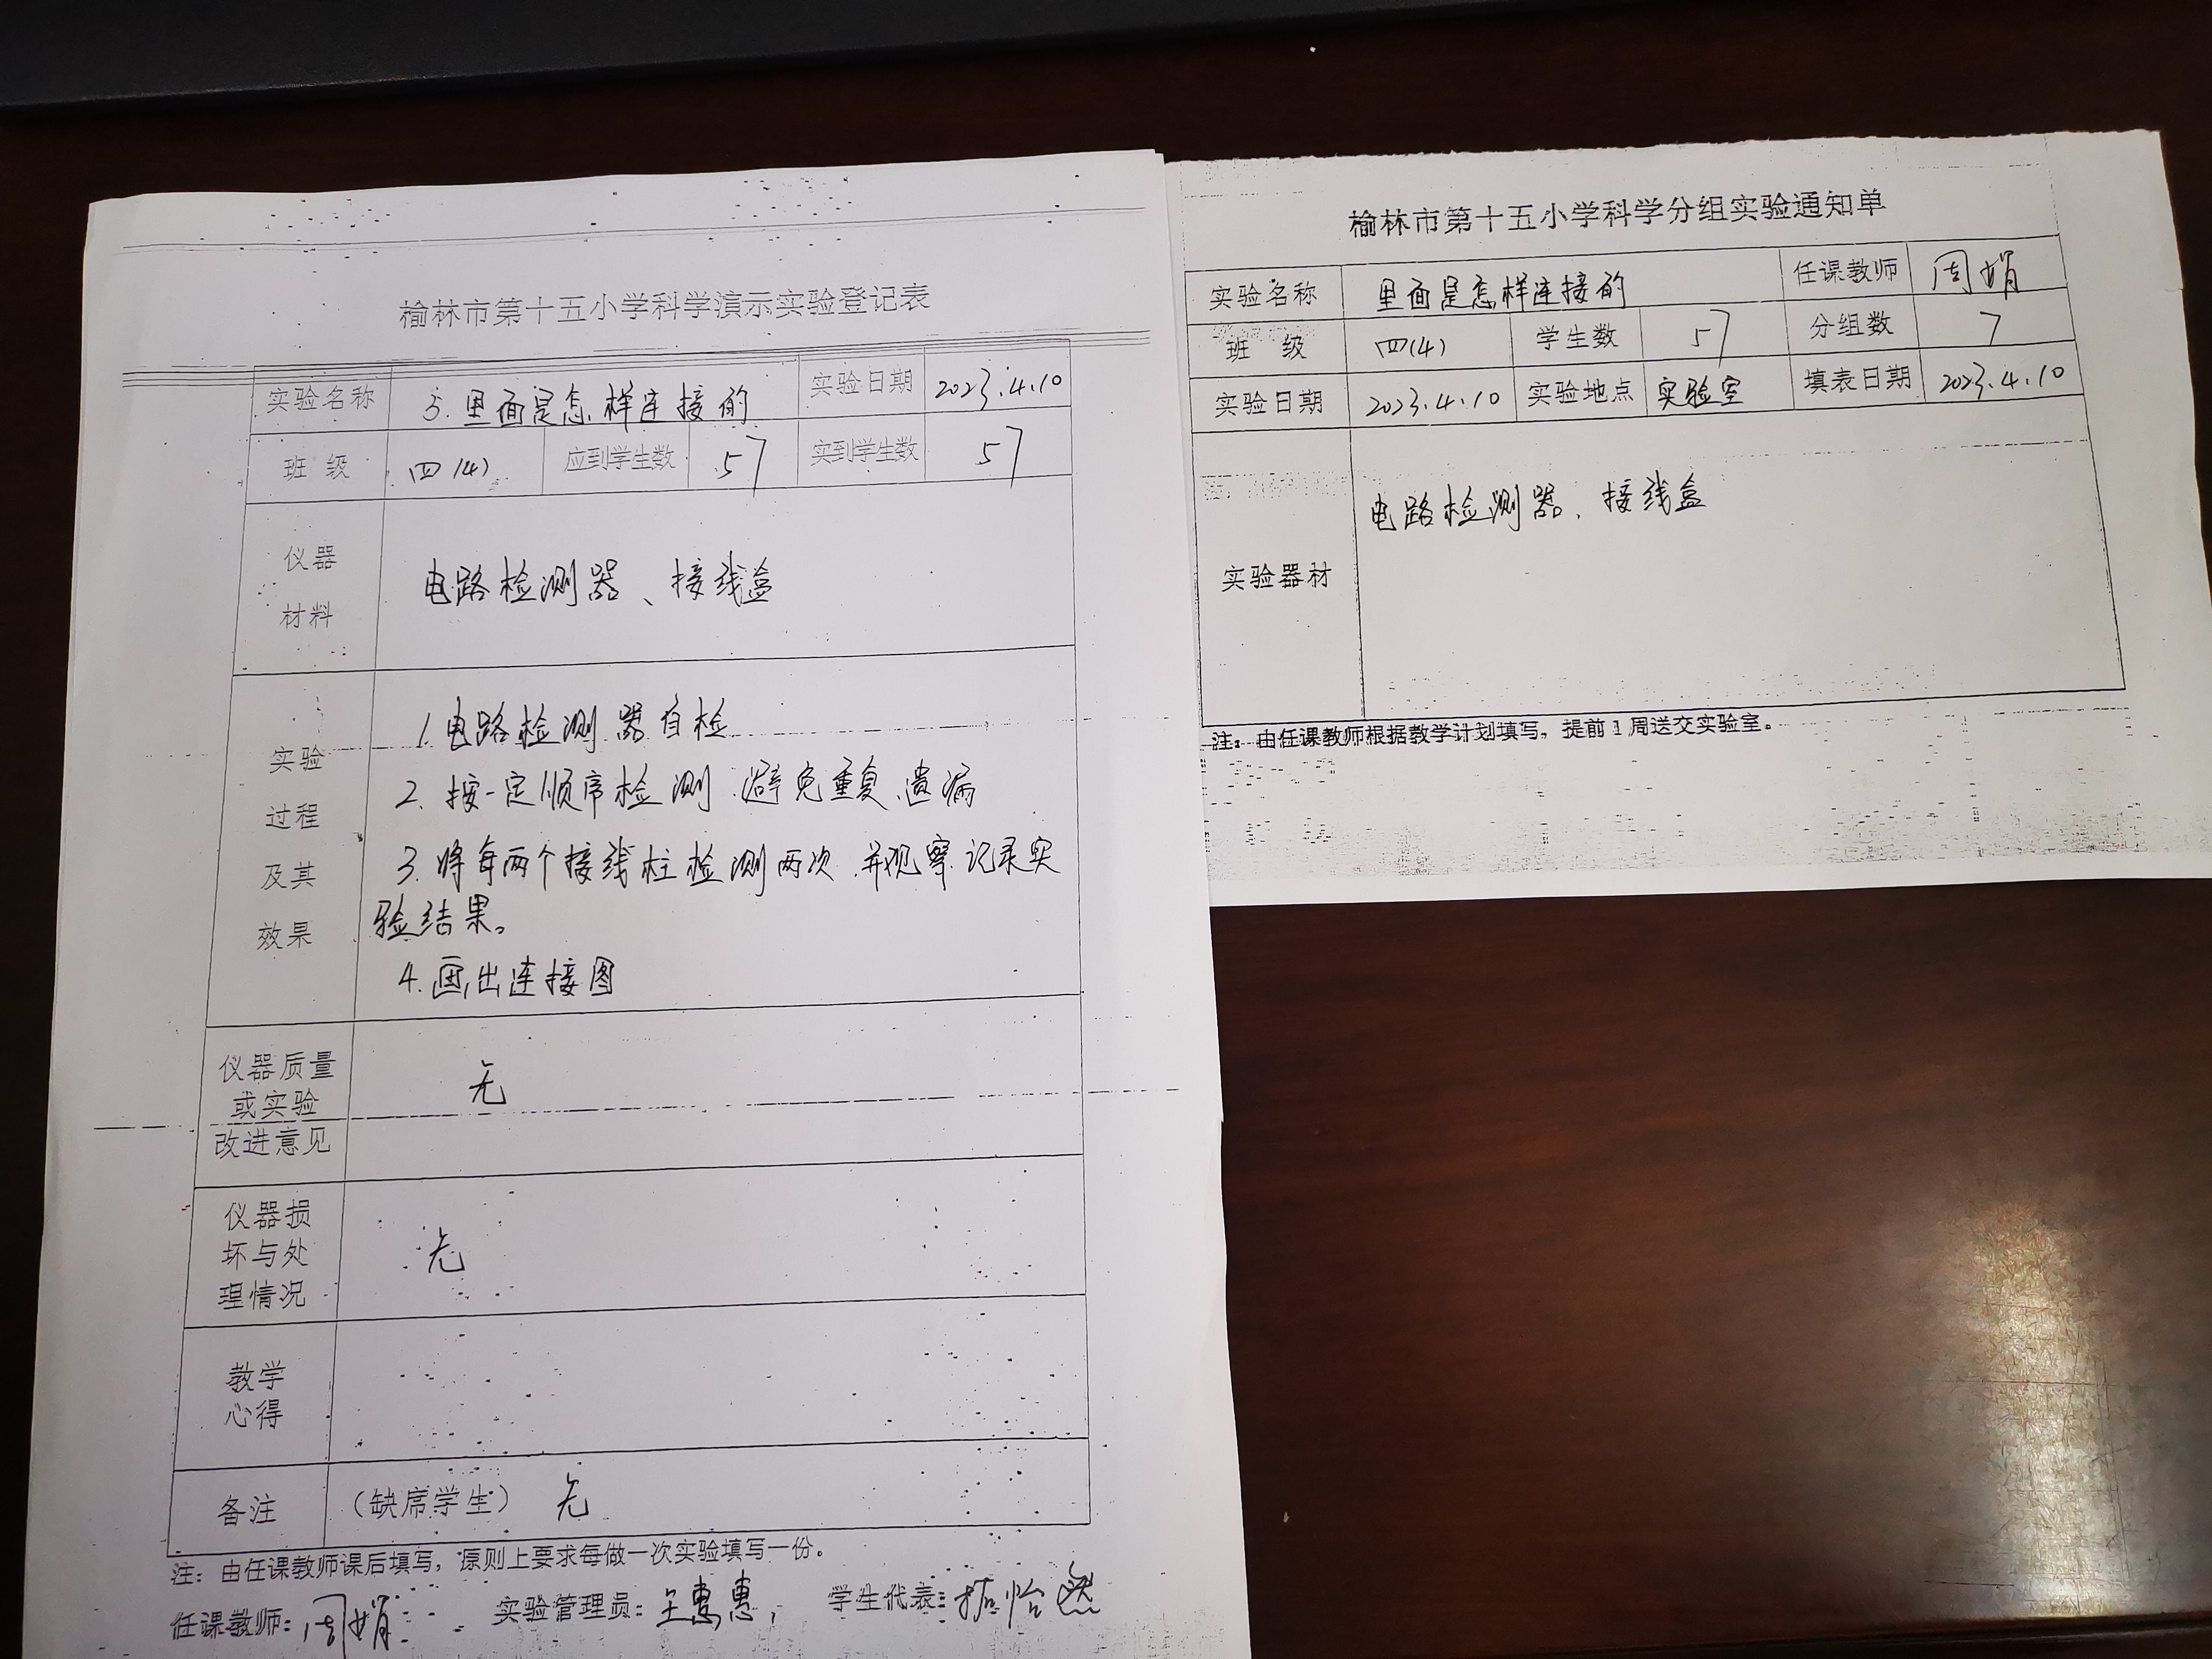 榆林市第十五小学科学演示实验登记表
实验名称 5.里面是怎样连接的 实验日期 2023.4.10
班 级 四(4) 应到学生数 57 实到学生数 57
仪器
材料
电路检测器、接线盒
实验
过程
及其
效果
1.电路检测器自检
2.按一定顺序检测.避免重复、遗漏
3.将每两个接线柱检测两次.并观察记录实
验结果。
4.画出连接图
仪器质量
或实验
改进意见
无
仪器损
坏与处
理情况
无
教学
心得
备注 (缺席学生) 无
注:由任课教师课后填写,原则上要求每做一次实验填写一份。
任课教师:周娟 实验管理员:王惠惠 学生代表:怡然
榆林市第十五小学科学分组实验通知单
实验名称 里面是怎样连接的 任课教师 周娟
班 级 四(4) 学生数 57 分组数 7
实验日期 2023.4.10 实验地点 实验室 填表日期 2023.4.10
实验器材
电路检测器、接线盒
注:由任课教师根据教学计划填写,提前1周送交实验室。